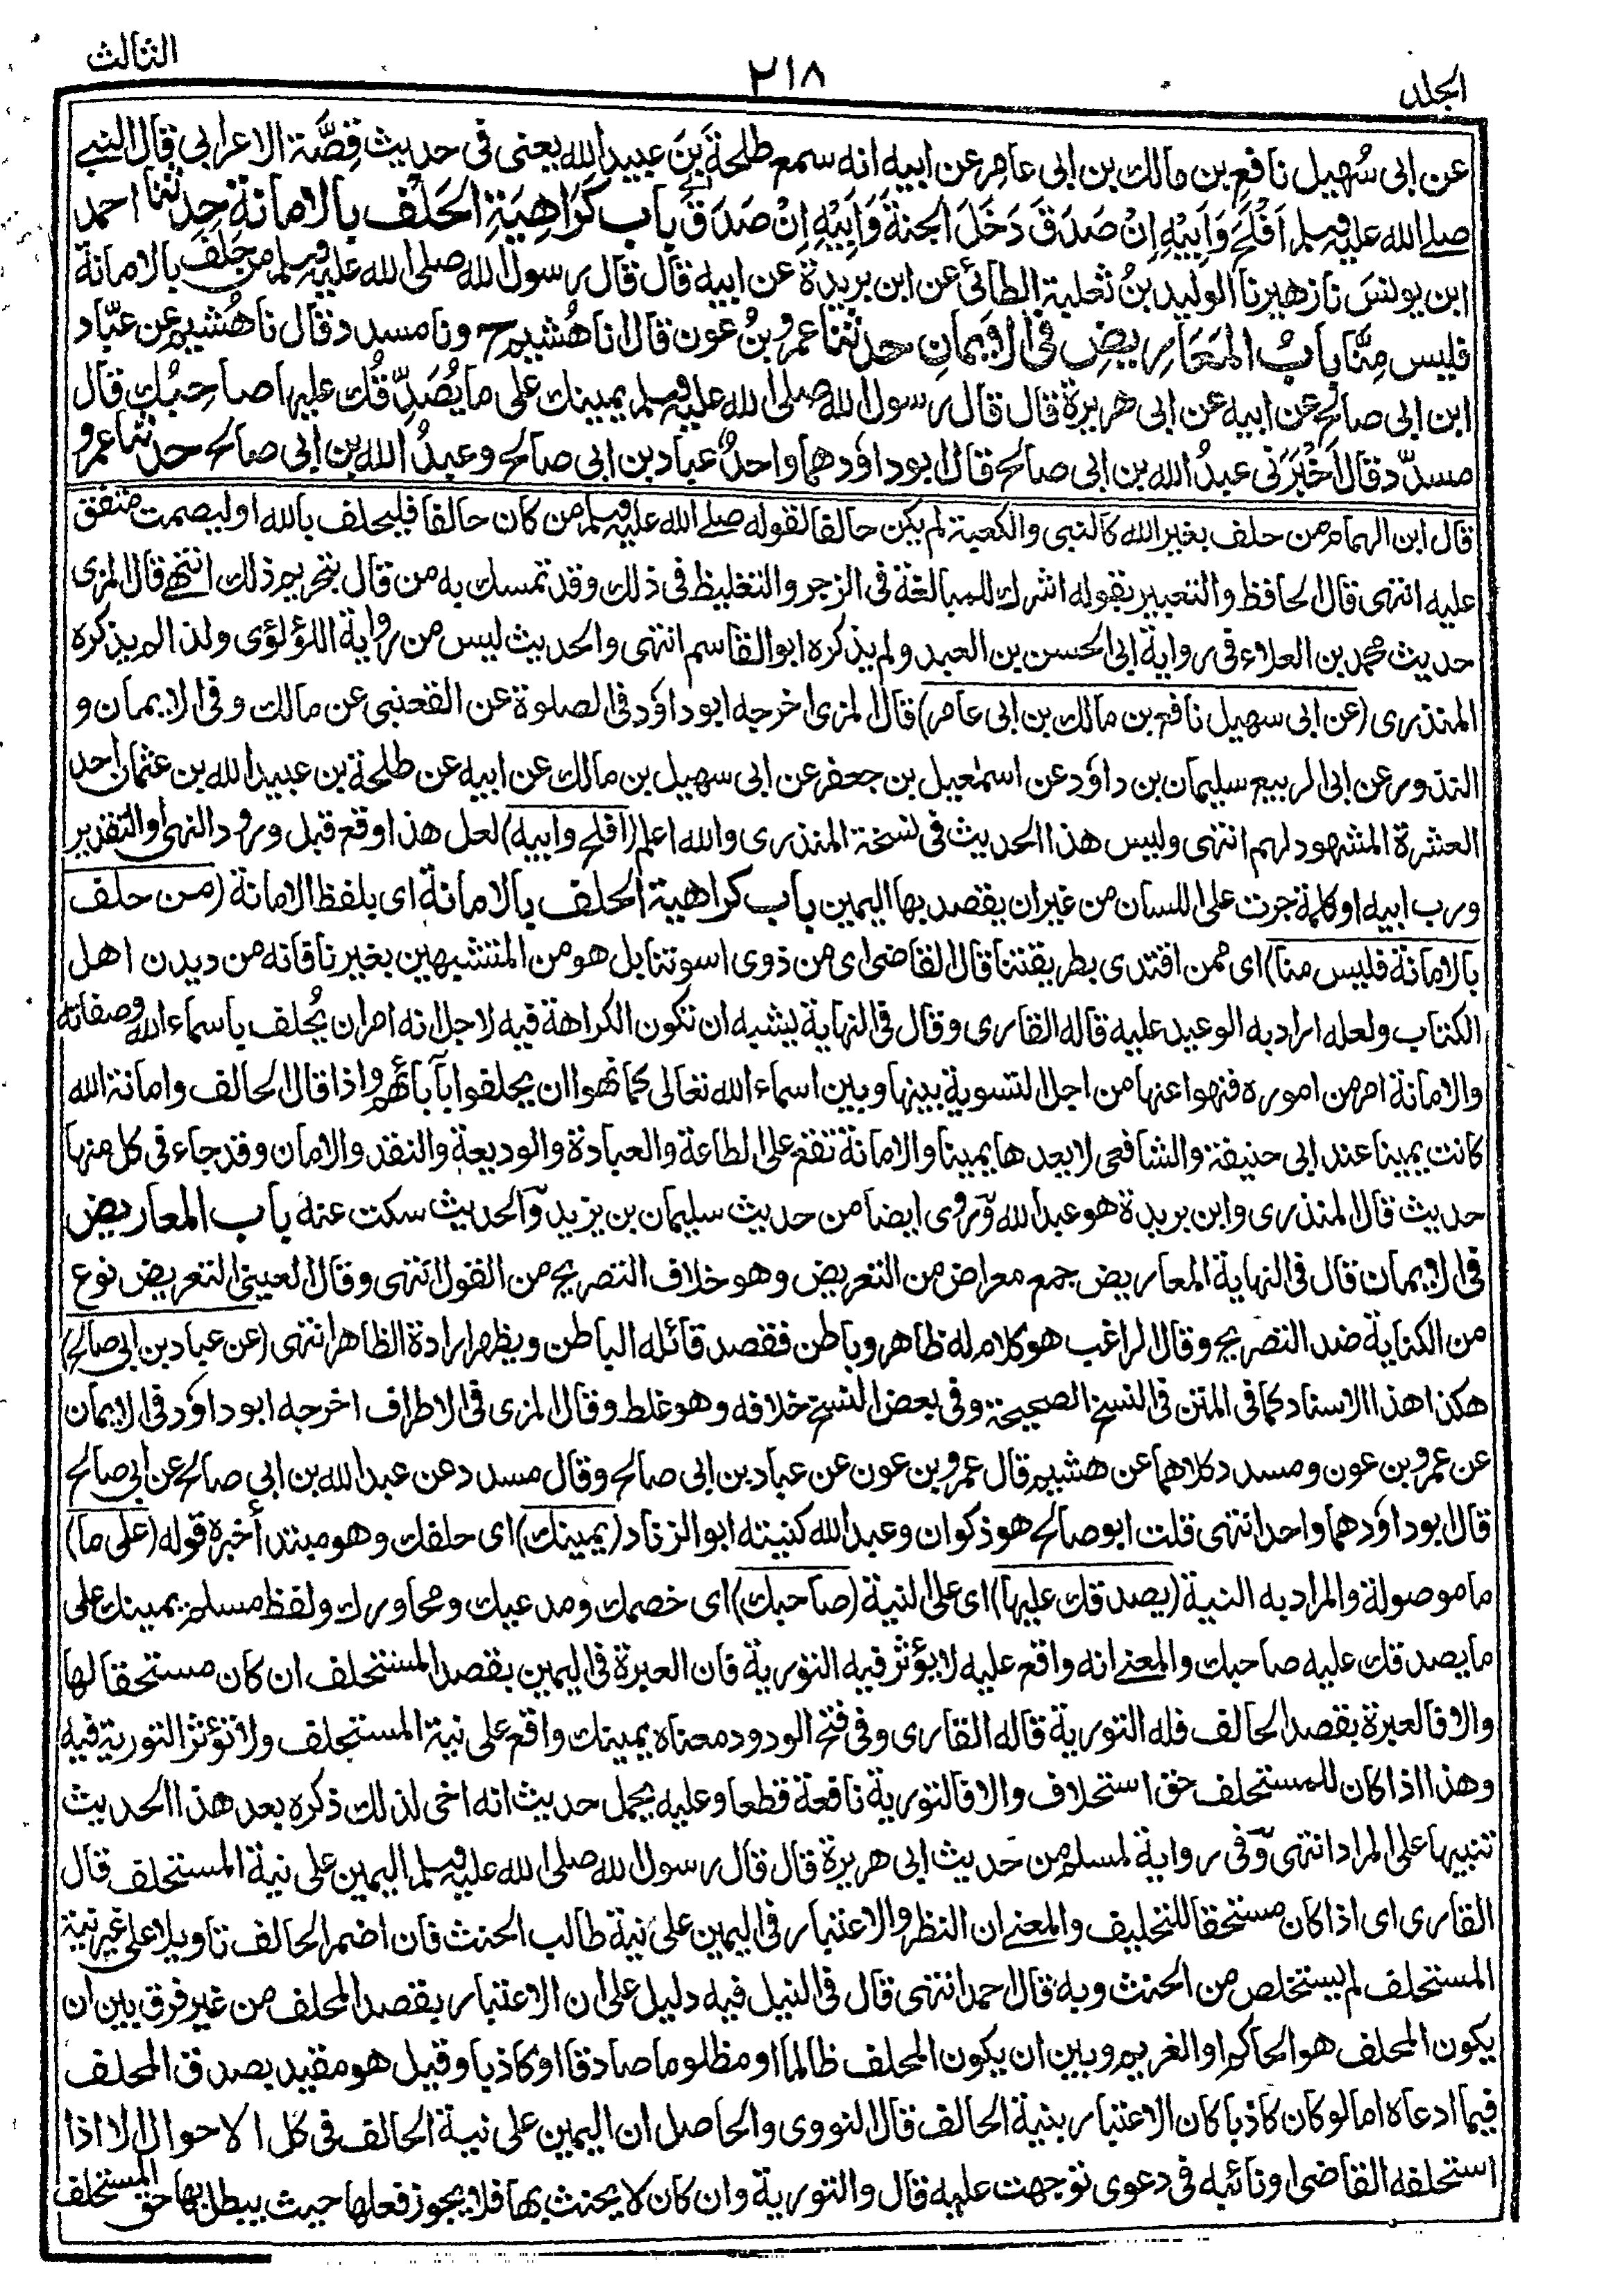 المجلد
٢١٨
الثالث
عن ابى سُهيل نافع بن مالك بن ابى عامر عن ابيه انه سمع طلحةَ بنَ عبيد الله يعنى فى حديث قِصَّة الاعرابى قال النبى
صلى الله عليه وسلم اَفْلَحَ وَاَبِيْهِ اِنْ صَدَقَ دَخَلَ الجنةَ وَاَبِيْهِ اِنْ صَدَقَ باب كَرَاهِيَةِ الحَلْف بالامانةِ حدثنا احمد
ابن يونسَ نا زهير نا الوليد بنُ ثعلبة الطائىُ عن ابن بريدة عن ابيه قال قال رسول الله صلى الله عليه وسلم من حَلَفَ بالامانة
فليس مِنَّا بابُ المَعَارِيضِ فى الاَيمانِ حدثنا عمرو بنُ عون قال انا هُشيم ح ونا مسدد قال نا هُشيم عن عبّاد
ابن ابى صالح عن ابيه عن ابى هريرة قال قال رسول الله صلى الله عليه وسلم يمينك على ما يُصَدِّقُك عليها صاحِبُك قال
مسدّد قال اَخْبَرَنى عبدُ الله بن ابى صالح قال ابو داؤد هما واحدٌ عباد بن ابى صالح وعبدُ الله بن ابى صالح حدثنا عمرو
قال ابن الهمام من حلف بغير الله كالنبى والكعبة لم يكن حالفا لقوله صلى الله عليه وسلم من كان حالفا فليحلف بالله او ليصمت متفق
عليه انتهى قال الحافظ والتعبير بقوله اشرك للمبالغة فى الزجر والتغليظ فى ذلك وقد تمسك به من قال بتحريم ذلك انتهى قال المزى
حديث محمد بن العلاء فى رواية ابى الحسن بن العبد ولم يذكره ابو القاسم انتهى والحديث ليس من رواية اللؤلؤى ولذا لم يذكره
المنذرى (عن ابى سهيل نافع بن مالك بن ابى عامر) قال المزى اخرجه ابو داؤد فى الصلوة عن القعنبى عن مالك وفى الايمان و
النذور عن ابى الربيع سليمان بن داؤد عن اسمٰعيل بن جعفر عن ابى سهيل بن مالك عن ابيه عن طلحة بن عبيد الله بن عثمان احد
العشرة المشهود لهم انتهى وليس هذا الحديث فى نسخة المنذرى والله اعلم (افلح وابيه) لعل هذا وقع قبل ورود النهى او التقدير
ورب ابيه او كلمة جرت على اللسان من غير ان يقصد بها اليمين باب كراهية الحلف بالامانة اى بلفظ الامانة (من حلف
بالامانة فليس منا) اى ممن اقتدى بطريقتنا قال القاضى اى من ذوى اسوتنا بل هو من المتشبهين بغيرنا فانه من ديدن اهل
الكتاب ولعله اراد به الوعيد عليه قاله القارى وقال فى النهاية يشبه ان تكون الكراهة فيه لاجل انه امر ان يُحلف باسماء الله وصفاته
والامانة امر من اموره فنهوا عنها من اجل التسوية بينها وبين اسماء الله تعالى كما نهوا ان يحلفوا بآبائهم واذا قال الحالف وامانة الله
كانت يمينا عند ابى حنيفة والشافعى لا يعدها يمينا والامانة تقع على الطاعة والعبادة والوديعة والنقد والامان وقد جاء فى كل منها
حديث قال المنذرى وابن بريدة هو عبد الله وروى ايضا من حديث سليمان بن يزيد والحديث سكت عنه باب المعاريض
فى الايمان قال فى النهاية المعاريض جمع معراض من التعريض وهو خلاف التصريح من القول انتهى وقال العينى التعريض نوع
من الكناية ضد التصريح وقال الراغب هو كلام له ظاهر وباطن فقصد قائله الباطن ويظهر ارادة الظاهر انتهى (عن عباد بن ابى صالح)
هكذا هذا الاسناد كما فى المتن فى النسخ الصحيحة وفى بعض النسخ خلافه وهو غلط وقال المزى فى الاطراف اخرجه ابو داؤد فى الايمان
عن عمرو بن عون ومسدد كلاهما عن هشيم قال عمرو بن عون عن عباد بن ابى صالح وقال مسدد عن عبد الله بن ابى صالح عن ابى صالح
قال ابو داؤد هما واحد انتهى قلت ابو صالح هو ذكوان وعبد الله كنيته ابو الزناد (يمينك) اى حلفك وهو مبتدأ خبره قوله (على ما)
ما موصولة والمراد به النية (يصدقك عليها) اى على النية (صاحبك) اى خصمك ومدعيك ومحاورك ولفظ مسلم يمينك على
ما يصدقك عليه صاحبك والمعنى انه واقع عليه لا يؤثر فيه التورية فان العبرة فى اليمين بقصد المستحلف ان كان مستحقا لها
والا فالعبرة بقصد الحالف فله التورية قاله القارى وفى فتح الودود معناه يمينك واقع على نية المستحلف ولا تؤثر التورية فيه
وهذا اذا كان للمستحلف حق استحلاف والا فالتورية نافعة قطعا وعليه يحمل حديث انه اخى لذلك ذكره بعد هذا الحديث
تنبيها على المراد انتهى وفى رواية لمسلم من حديث ابى هريرة قال قال رسول الله صلى الله عليه وسلم اليمين على نية المستحلف قال
القارى اى اذا كان مستحقا للتحليف والمعنى ان النظر والاعتبار فى اليمين على نية طالب الحنث فان اضمر الحالف تاويلا على غير نية
المستحلف لم يستخلص من الحنث وبه قال احمد انتهى قال فى النيل فيه دليل على ان الاعتبار بقصد المحلف من غير فرق بين ان
يكون المحلف هو الحاكم او الغريم وبين ان يكون المحلف ظالما او مظلوما صادقا او كاذبا وقيل هو مقيد بصدق المحلف
فيما ادعاه اما لو كان كاذبا كان الاعتبار بنية الحالف قال النووى والحاصل ان اليمين على نية الحالف فى كل الاحوال الا اذا
استحلفه القاضى او نائبه فى دعوى توجهت عليه قال والتورية وان كان لا يحنث بها فلا يجوز فعلها حيث يبطل بها حق المستحلف